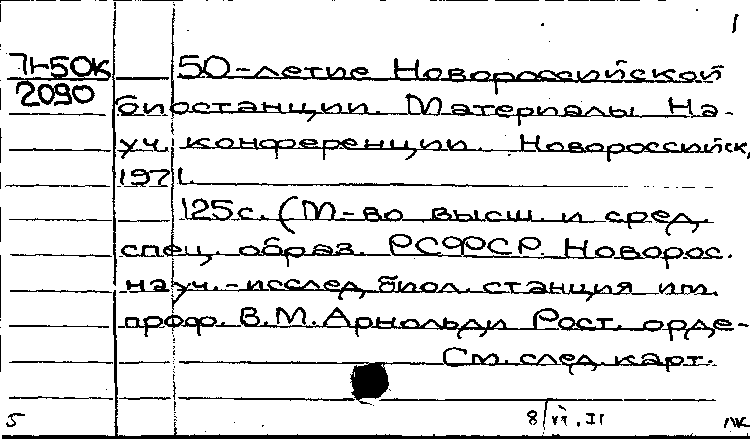 1
П-50к 50-летие Новороссийской
2090 биостанции. Материалы На-
уч. конференции. Новороссийск,
1971.
125с. (М-во высш. и сред.
спец. образ. РСФСР. Новорос.
науч.-исслед. биол. станция им.
проф. В.М.Арнольди Рост. орде-
См. след. карт.
5